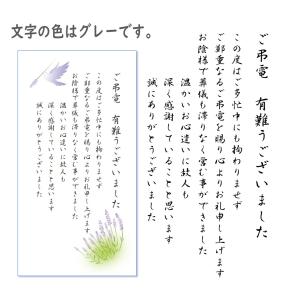 文字の色はグレーです。
ご弔電　有難うございました
この度はご多忙中にも拘わりませず
ご鄭重なるご弔電を賜り心よりお礼申し上げます
お陰様で葬儀も滞りなく営む事ができました
温かいお心遣いに故人も
深く感謝していることと思います
誠にありがとうございました
ご弔電　有難うございました
この度はご多忙中にも拘わりませず
ご鄭重なるご弔電を賜り心よりお礼申し上げます
お陰様で葬儀も滞りなく営む事ができました
温かいお心遣いに故人も
深く感謝していることと思います
誠にありがとうございました